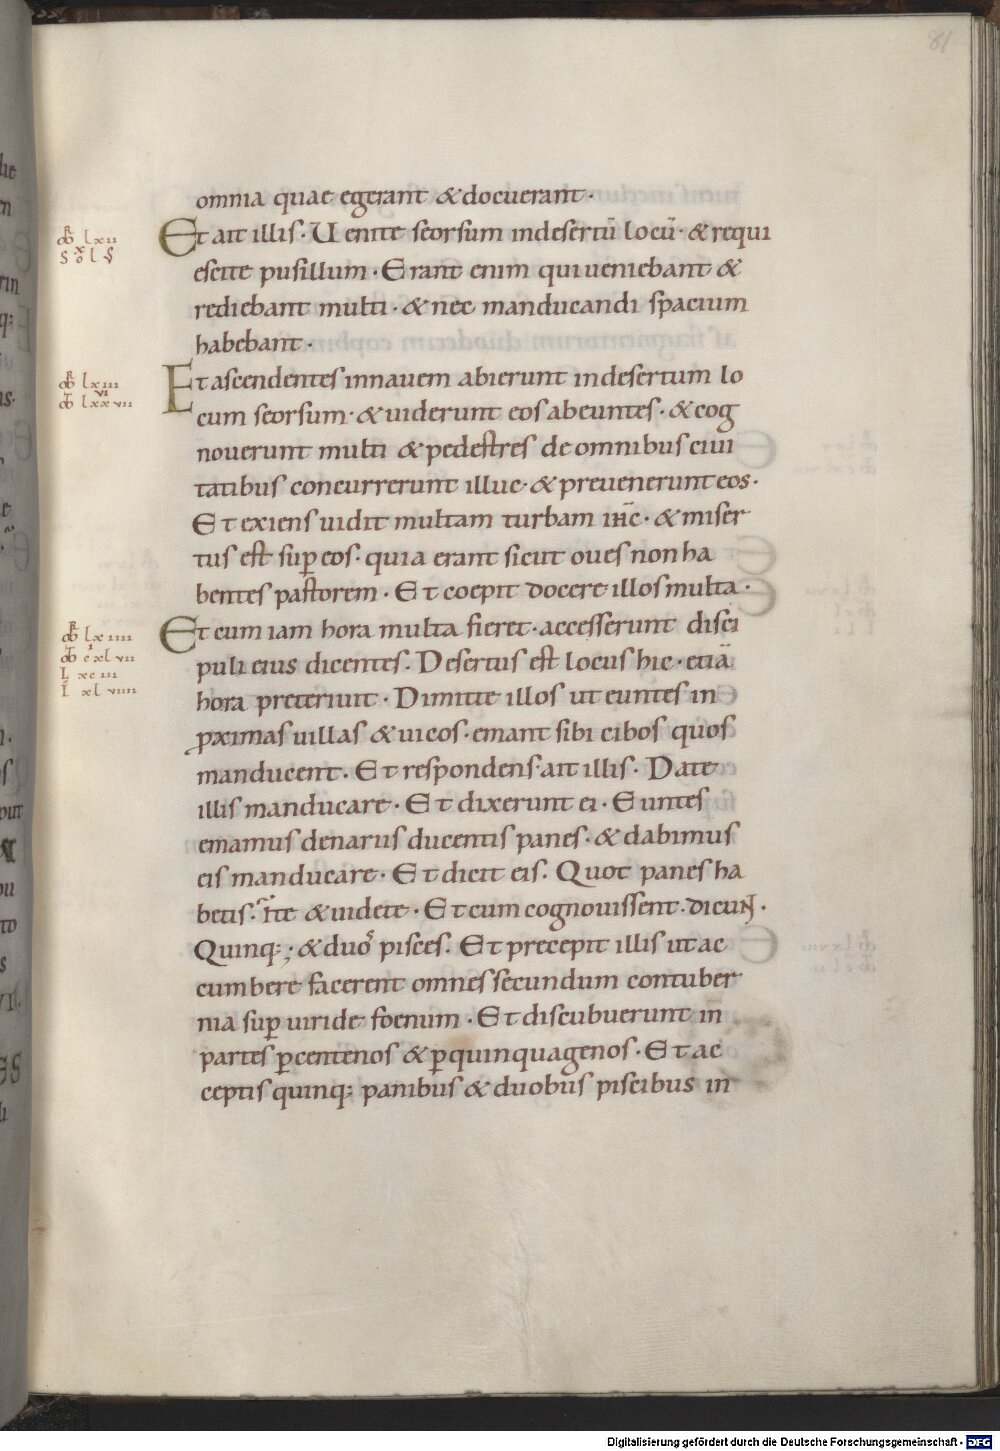 81
omnia quae egerant & docuerant ·
Et ait illis · Uenite seorsum in desertū locū · & requi
escite pusillum · Erant enim qui ueniebant &
rediebant multi · & nec manducandi spacium
habebant ·
Et ascendentes in nauem abierunt in desertum lo
cum seorsum · & uiderunt eos abeuntes · & cog
nouerunt multi & pedestres de omnibus ciui
tatibus concurrerunt illuc · & preuenerunt eos ·
Et exiens uidit multam turbam ihc̄ · & miser
tus est suꝑ eos · quia erant sicut oues non ha
bentes pastorem · Et coepit docere illos multa ·
Et cum iam hora multa fieret · accesserunt disci
puli eius dicentes · Desertus est locus hic · etiā
hora preteriuit · Dimitte illos ut euntes in
ꝓximas uillas & uicos · emant sibi cibos quos
manducent · Et respondens ait illis · Date
illis manducare · Et dixerunt ei · Euntes
emamus denariis ducentis panes · & dabimus
eis manducare · Et dicit eis · Quot panes ha
betis · Ite & uidete · Et cum cognouissent · dicunt ·
Quinq; · & duos pisces · Et precepit illis ut ac
cumbere facerent omnes secundum contuber
nia suꝑ uiride foenum · Et discubuerunt in
partes ꝑ centenos & ꝑ quinquagenos · Et ac
ceptis quinq; panibus & duobus piscibus in
Digitalisierung gefördert durch die Deutsche Forschungsgemeinschaft - DFG